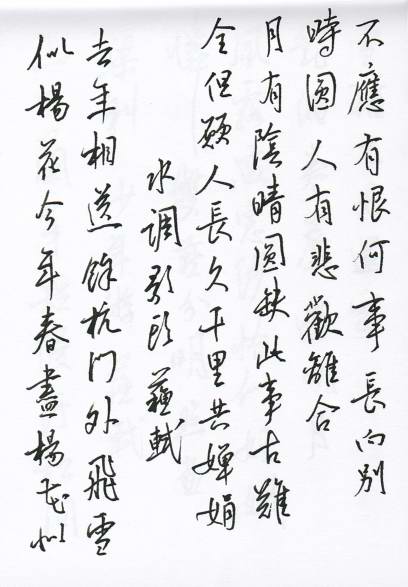 不應有恨何事長向別
時圓人有悲歡離合
月有陰晴圓缺此事古難
全但願人長久千里共嬋娟
水调歌头蘇軾
去年相送餘杭门外飛雪
似楊花今年春盡楊花似